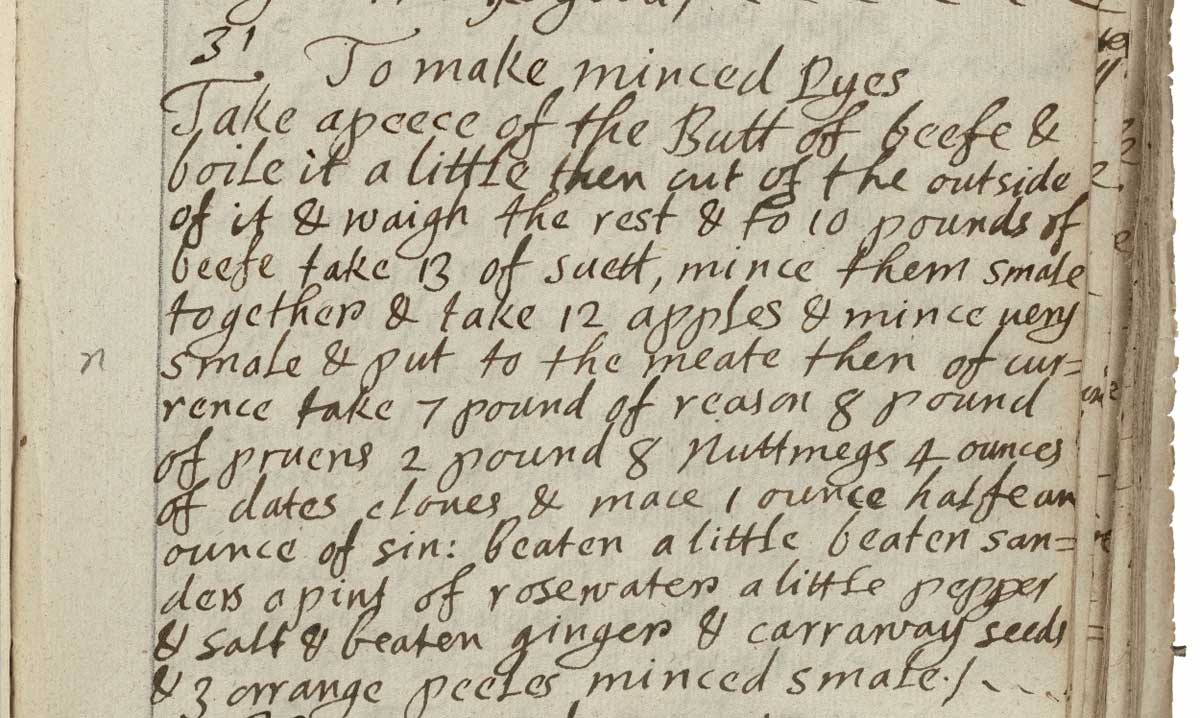 31 To make minced Pyes
Take a peece of the Butt of beefe &
boile it a little then cut of the outside
of it & waigh the rest & to 10 pounds of
beefe take 13 of suett, mince them smale
together & take 12 apples & mince very
smale & put to the meate then of cur=
rence take 7 pound of reason 8 pound
of pruens 2 pound 8 Nuttmegs 4 ounces
of dates cloves & mace 1 ounce halfe an
ounce of sin: beaten a little beaten san=
ders a pint of rosewater a little pepper
& salt & beaten ginger & carraway seeds
& 3 orrange peeles minced smale./